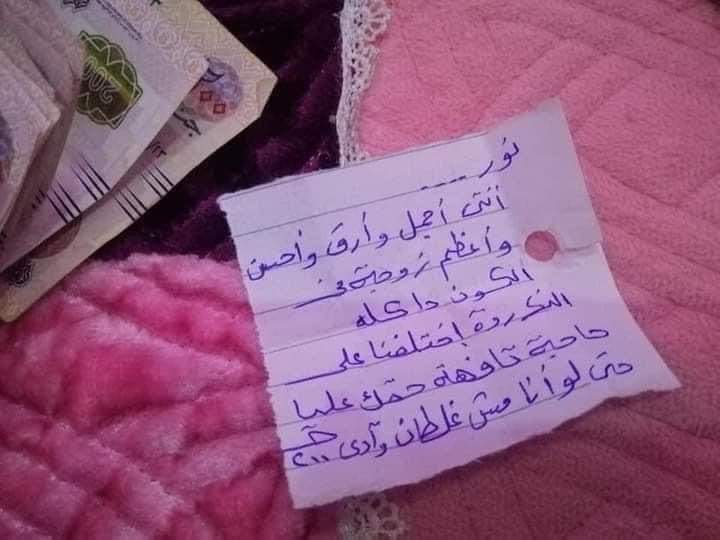 نور ----
أنتى أجمل وأرق وأحسن
وأعظم زوجة فى
الكون داكله
النهاردة اختلفنا على
حاجة تافهة حقك عليا
حتى لو أنا مش غلطان وآدى ٢٠٠ جـ
200